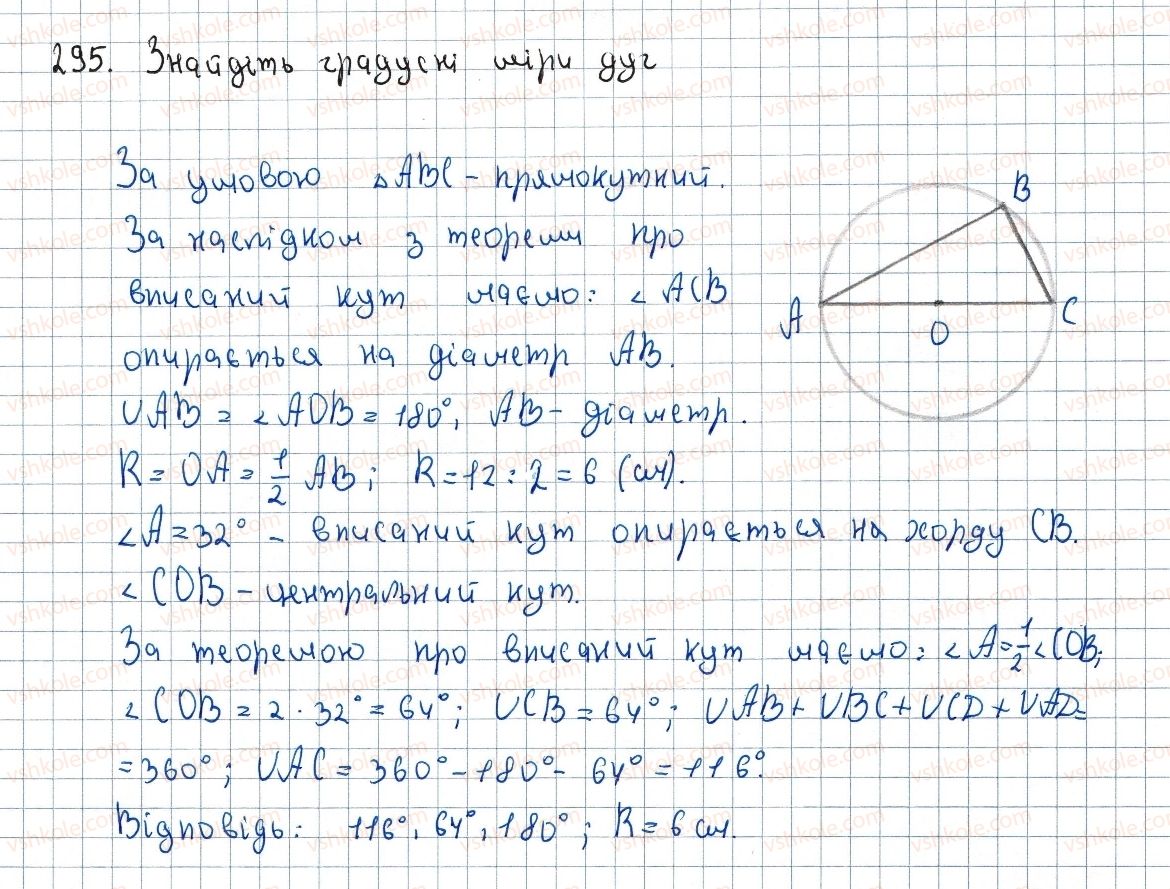 295. Знайдіть градусні міри дуг
За умовою ▵ABC - прямокутний.
За наслідком з теореми про
вписаний кут маємо: ∠ACB
опирається на діаметр AB.
∪AB = ∠AOB = 180°, AB - діаметр.
R = OA = 1/2 AB; R = 12 : 2 = 6 (см).
∠A = 32° - вписаний кут опирається на хорду CB.
∠COB - центральний кут.
За теоремою про вписаний кут маємо: ∠A = 1/2 ∠COB;
∠COB = 2 · 32° = 64°; ∪CB = 64°; ∪AB + ∪BC + ∪CD + ∪AD =
= 360°; ∪AC = 360° - 180° - 64° = 116°.
Відповідь: 116°, 64°, 180°; R = 6 см.
B
A
O
C
vshkole.com